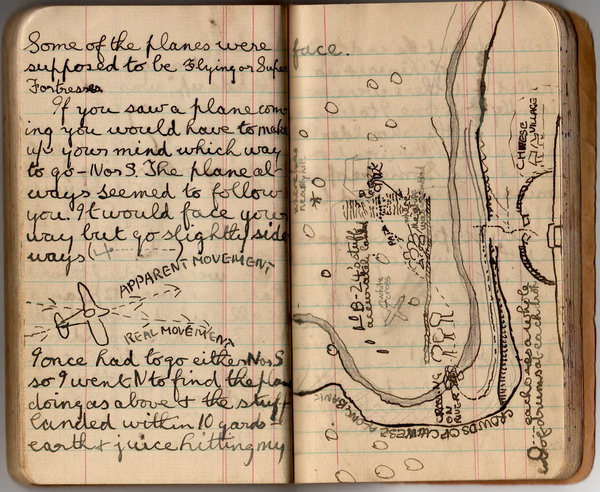 Some of the planes were
supposed to be Flying or Super
Fortresses.
If you saw a plane com
ing you would have to make
up your mind which way
to go – N or S. The plane al-
ways seemed to follow
you. It would face your
way but go slightly side
ways
APPARENT MOVEMENT
REAL MOVEMENT
I once had to go either N or S
so I went N to find the plane
doing as above & the stuff
landed within 10 yards –
earth & juice hitting my
face.
CHINESE
VILLAGE
B-24's stuff
accurately
white
cross
ON
RIVER
CROWDS OF CHINESE ALONG BANK
each one a whole
load of drums at each hit